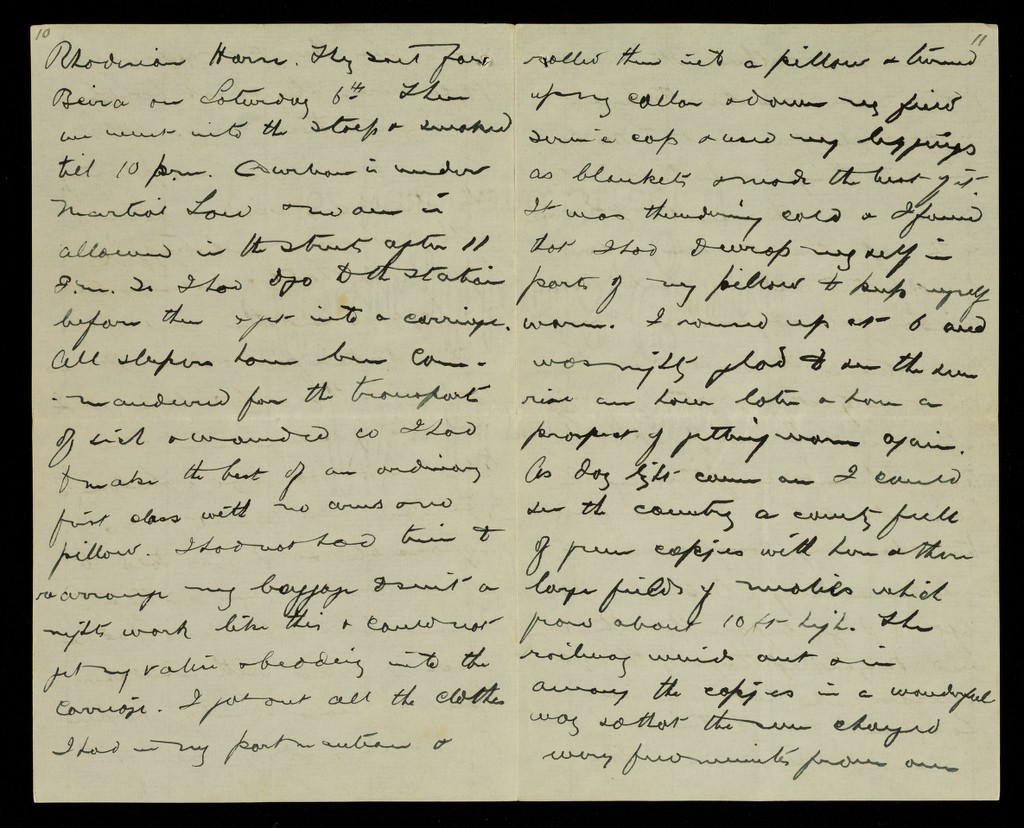 10
Rhodesian Horse. They sail for
Beira on Saturday 6th. Then
we went into the stoep & smoked
till 10 p.m. is under
Martial Law & no one is
allowed in the streets after 11
P.m. So I had to go to the station
before then & get into a carriage.
All sleepers have been Com-
-mandeered for the transport
of sick & wounded so I had
to make the best of an ordinary
first class with no arms and
pillow. I had not had time to
rearrange my baggage to suit a
nights work like this & could not
get my valise & bedding into the
carriage. I got out all the clothes
I had in my portmanteau &
11
rolled them into a pillow & turned
up my collar & down my field
service cap & used my leggings
as blankets & made the best of it.
It was thundering cold & I found
that I had to wrap myself in
parts of my pillow to keep myself
warm. I roused up at 6 and
was mighty glad to see the sun
rise an hour later & have a
prospect of getting warm again.
As day light came on I could
see the country a county full
of green copjes with here & there
large fields of mealies which
grow about 10 ft high. The
railway winds out & in
among the copjes in a wonderful
way so that the sun changed
every few minutes from one